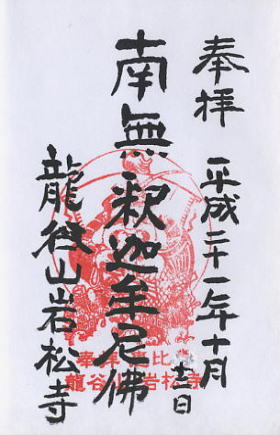 奉拝
平成二十一年十月
十一日
南無釈迦牟尼佛
龍谷山岩松寺
龍谷山岩松寺